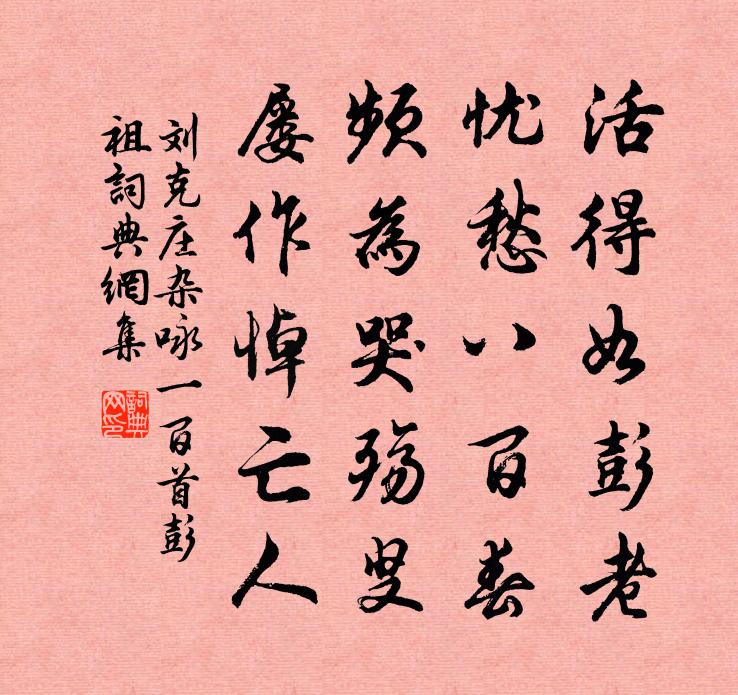 活得如彭老
忧愁八百春
频为哭殇叟
屡作悼亡人
刘克庄杂咏一百首彭
祖詞典網集
詞典
网印